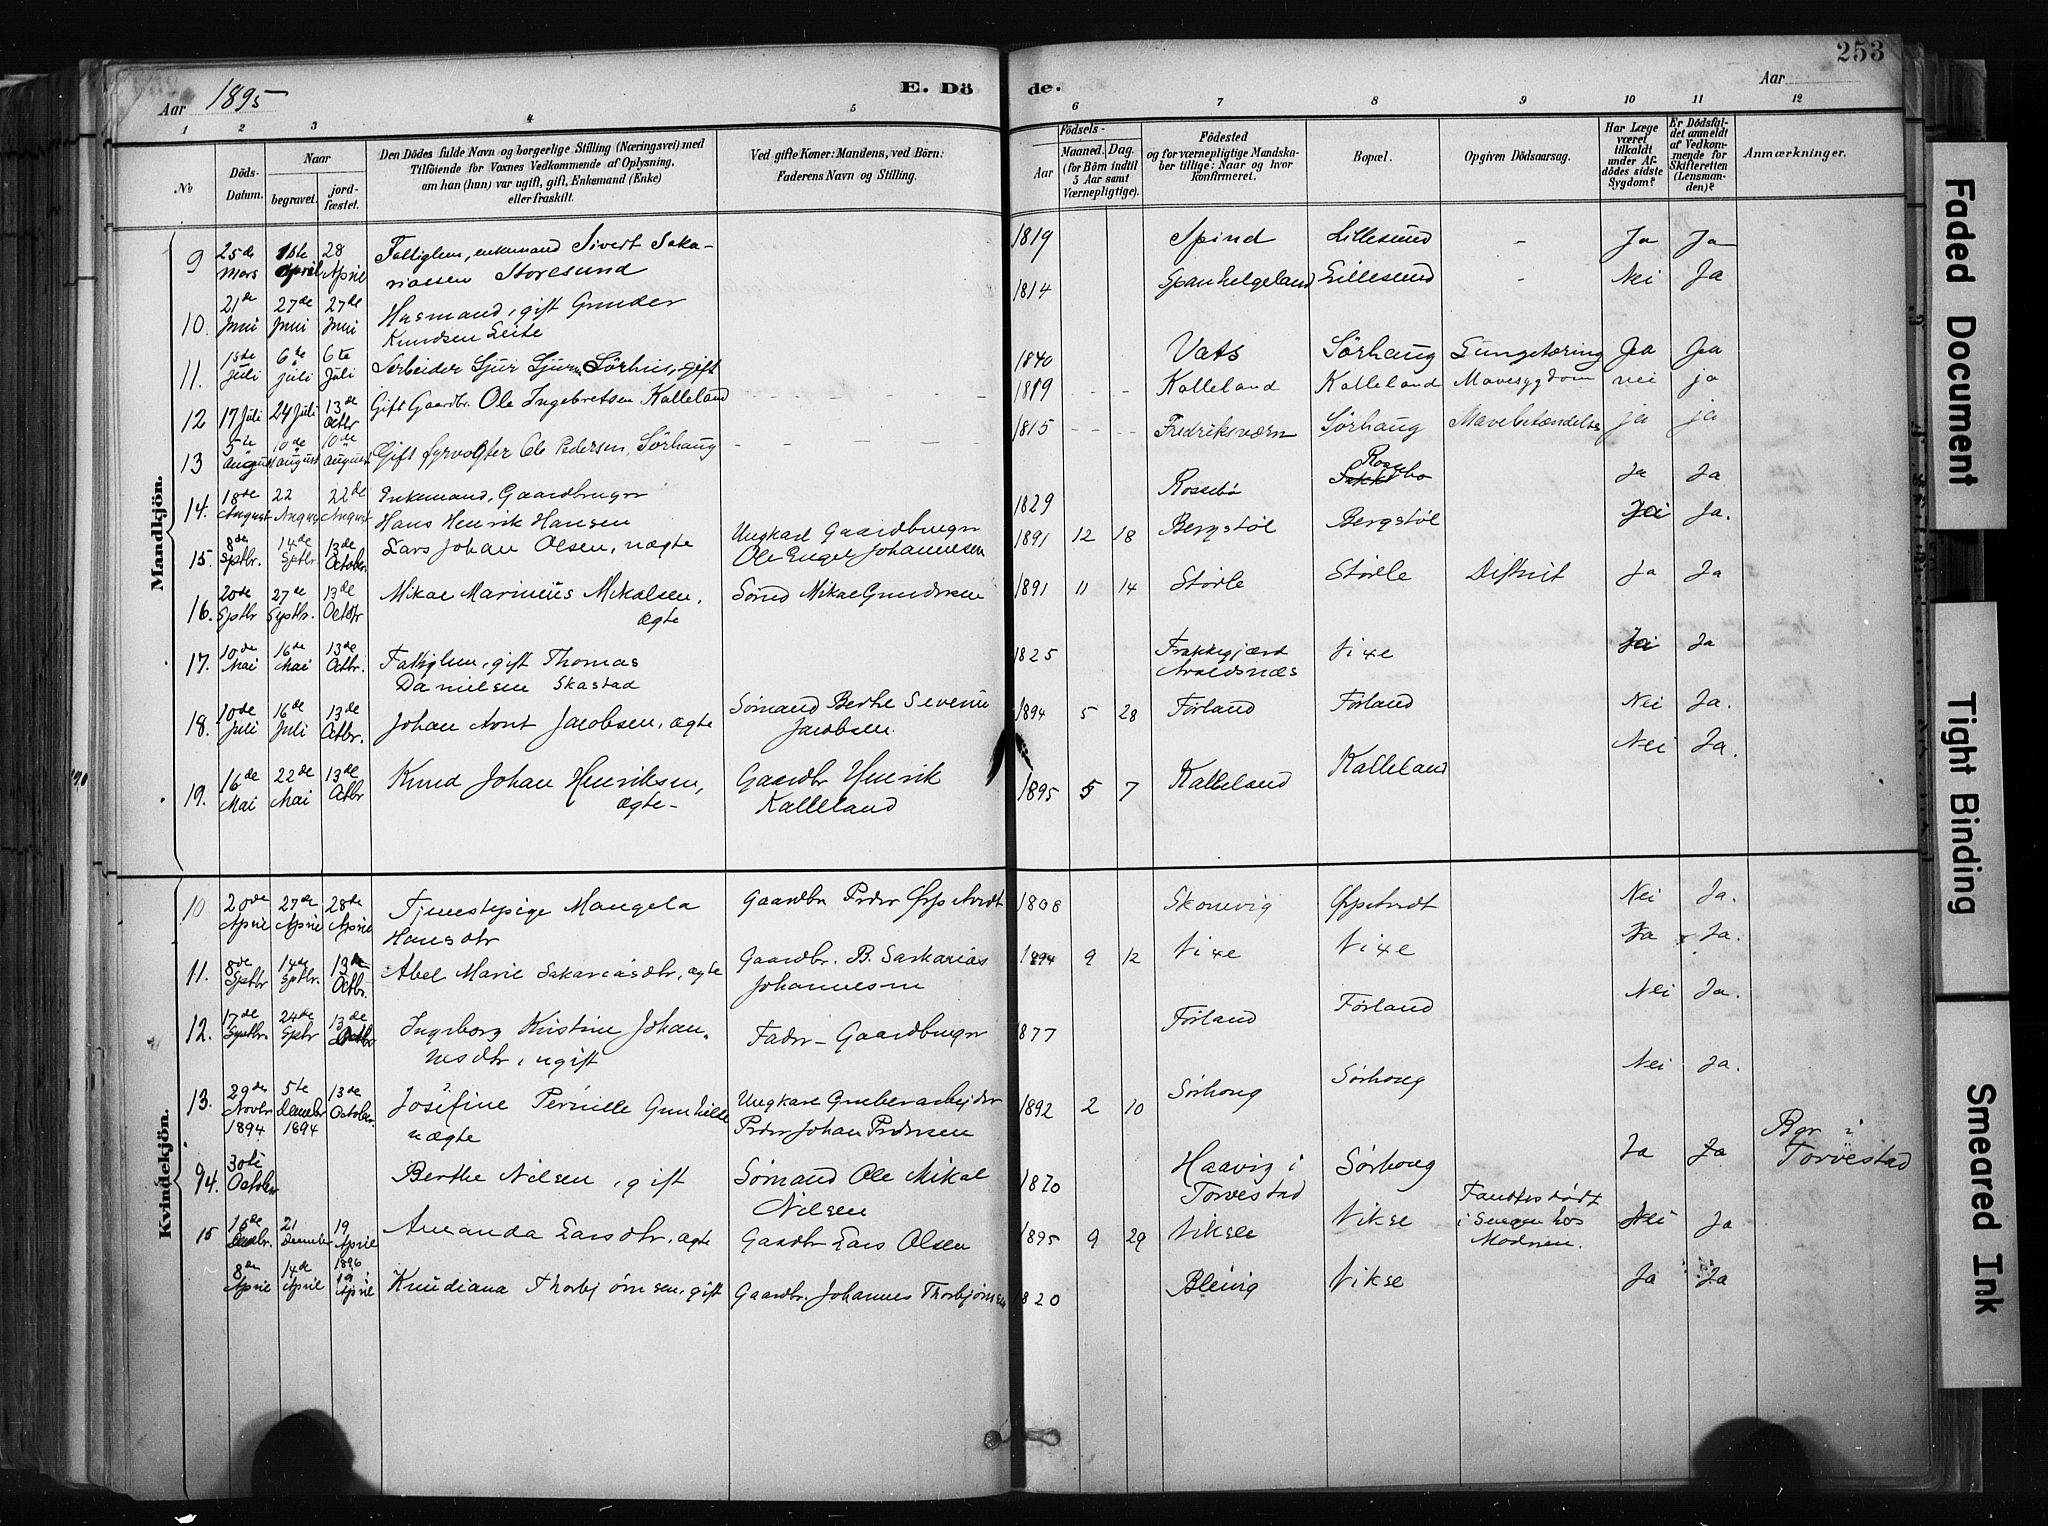 253
Aar 1895
E. Dö
de.
Aar
1 2 3 4 5 6 7 8 9 10 11 12
No
Döds-Datum.
Naar
begravet.
jord-fæstet.
Den Dödes fulde Navn og borgerlige Stilling (Næringsvei) med
Tilföiende for Voxnes Vedkommende af Oplysning,
om han (hun) var ugift, gift, Enkemand (Enke)
eller fraskilt.
Ved gifte Koner: Mandens, ved Börn:
Faderens Navn og Stilling.
Födsels-
Aar
Maaned. Dag.
(for Börn indtil
5 Aar samt
Værnepligtige).
Födested
og for værnepligtige Mandska-
ber tillige: Naar og hvor
konfirmeret.
Bopæl.
Opgiven Dödsaarsag.
Har Læge
været
tilkaldt
under Af-
dödes sidste
Sygdom?
Er Dödsfal-
det anmeldt
af Vedkom-
mende for
Skifteretten
(Lensman-
den)?
Anmærkninger.
Mandkjön.
9 25de Mars 1ste April 28 April Fattiglem, enkemand Sivert Saka-
riassen Storesund 1819 Spind Lillesund - Ja Ja
10. 21de Juni 27de Juni 27de Juni Husmand, gift Gunder
Knudsen Leite 1814 Spanhelgeland Lillesund - Nei Ja
11. 1ste Juli 6te Juli 6te Juli Arbeider Sjur Sjursen Sørhus, gift 1840 Vats Sörhaug Lungetæring Ja Ja
12 17 Juli 24 Juli 13de Octbr Gift Gaardbr. Ole Ingebretsen Kalleland 1819 - - Kalleland Kalleland Mavesygdom nei ja
13 5te August 10de August 10de August Gift fyrvogter Ole Pedersen, Sörhaug 1815 - - Fredriksværn Sörhaug Mavebetændelse ja ja
14. 18de August 22 August 22de August Enkemand, Gaardbruger
Hans Henrik Hansen 1829 Rossebø Rossebø Ja Ja.
15. 8de Sptbr. 14de Sptbr 13de Octobr. Lars Johan Olsen, uægte Ungkarl Gaardbruger
Ole Engel Johannesen 1891 12 18 Bergstøl Bergstøl Nei Ja.
16. 20de Sptbr 27de Sptbr. 13de Octbr Mikal Marinius Mikalsen,
ægte Sømd Mikal Gundersen 1891 11 14 Störle Störle Difterit Ja Ja
17. 10de Mai 16de Mai 13de Octbr. Fattiglem, gift Thomas
Danielsen Skastad 1825 Frakkegjærd
Avaldsnæs Vixe Nei Ja
18. 10de Juli 16de Juli 13de Octbr. Johan Arnt Jacobsen, ægte Sømand Berthe Severin
Jacobsen. 1894 5 28 Førland Førland Nei Ja.
19. 16de Mai 22de Mai 13de Octbr Knud Johan Henriksen,
ægte- Gaardbr Henrik
Kalleland 1895 5 7 Kalleland Kalleland Nei Ja.
Kvindekjön.
10 20de April 27de April 28de April Tjenestepige Mangela
Hansdtr Gaardbr Peder 1808 Skonevig Nei Ja.
11. 8de Sptbr 14de Sptbr. 13de Octbr. Abel Marie Sakariasdtr, ægte Gaardbr. B. Sarkarias
Johannesen 1894 9 12 Vixe Vixe Ja Ja.
12. 17de Septbr. 24de Sptbr 13de Octbr Ingeborg Kristine Johan-
nesdtr, ugift Fader - Gaardbruger 1877 Førland Førland Nei Ja.
13. 29de Novbr 1894 5te December 1894 13de October. Josefine Pernille Gunhilde
uægte Ungkarl Grubearbejder
Peder Johan Pedersen 1892 2 10 Sørhoug Sørhoug Nei Ja.
14. 30te October Berthe Nilsen, gift Sømand Ole Mikal
Nilsen 1870 Haavig i
Torvestad Sørhoug Ja Ja Bgr i
Torvestad
15 16de Decbr. 21 December 19 April 1896 Amanda Larsdtr, ægte Gaardbr Lars Olsen 1895 9 29 Vikse Vikse Fandtes dødt
i Sengen hos
Modren. Nei Ja
8de April 14de April 19 April Knudiana Thorbjørnsen, gift Gaardbr. Johannes Thorbjørnsen 1820 Blikvig Vikse Ja Ja
Faded Document
Tight Binding
Smeared Ink